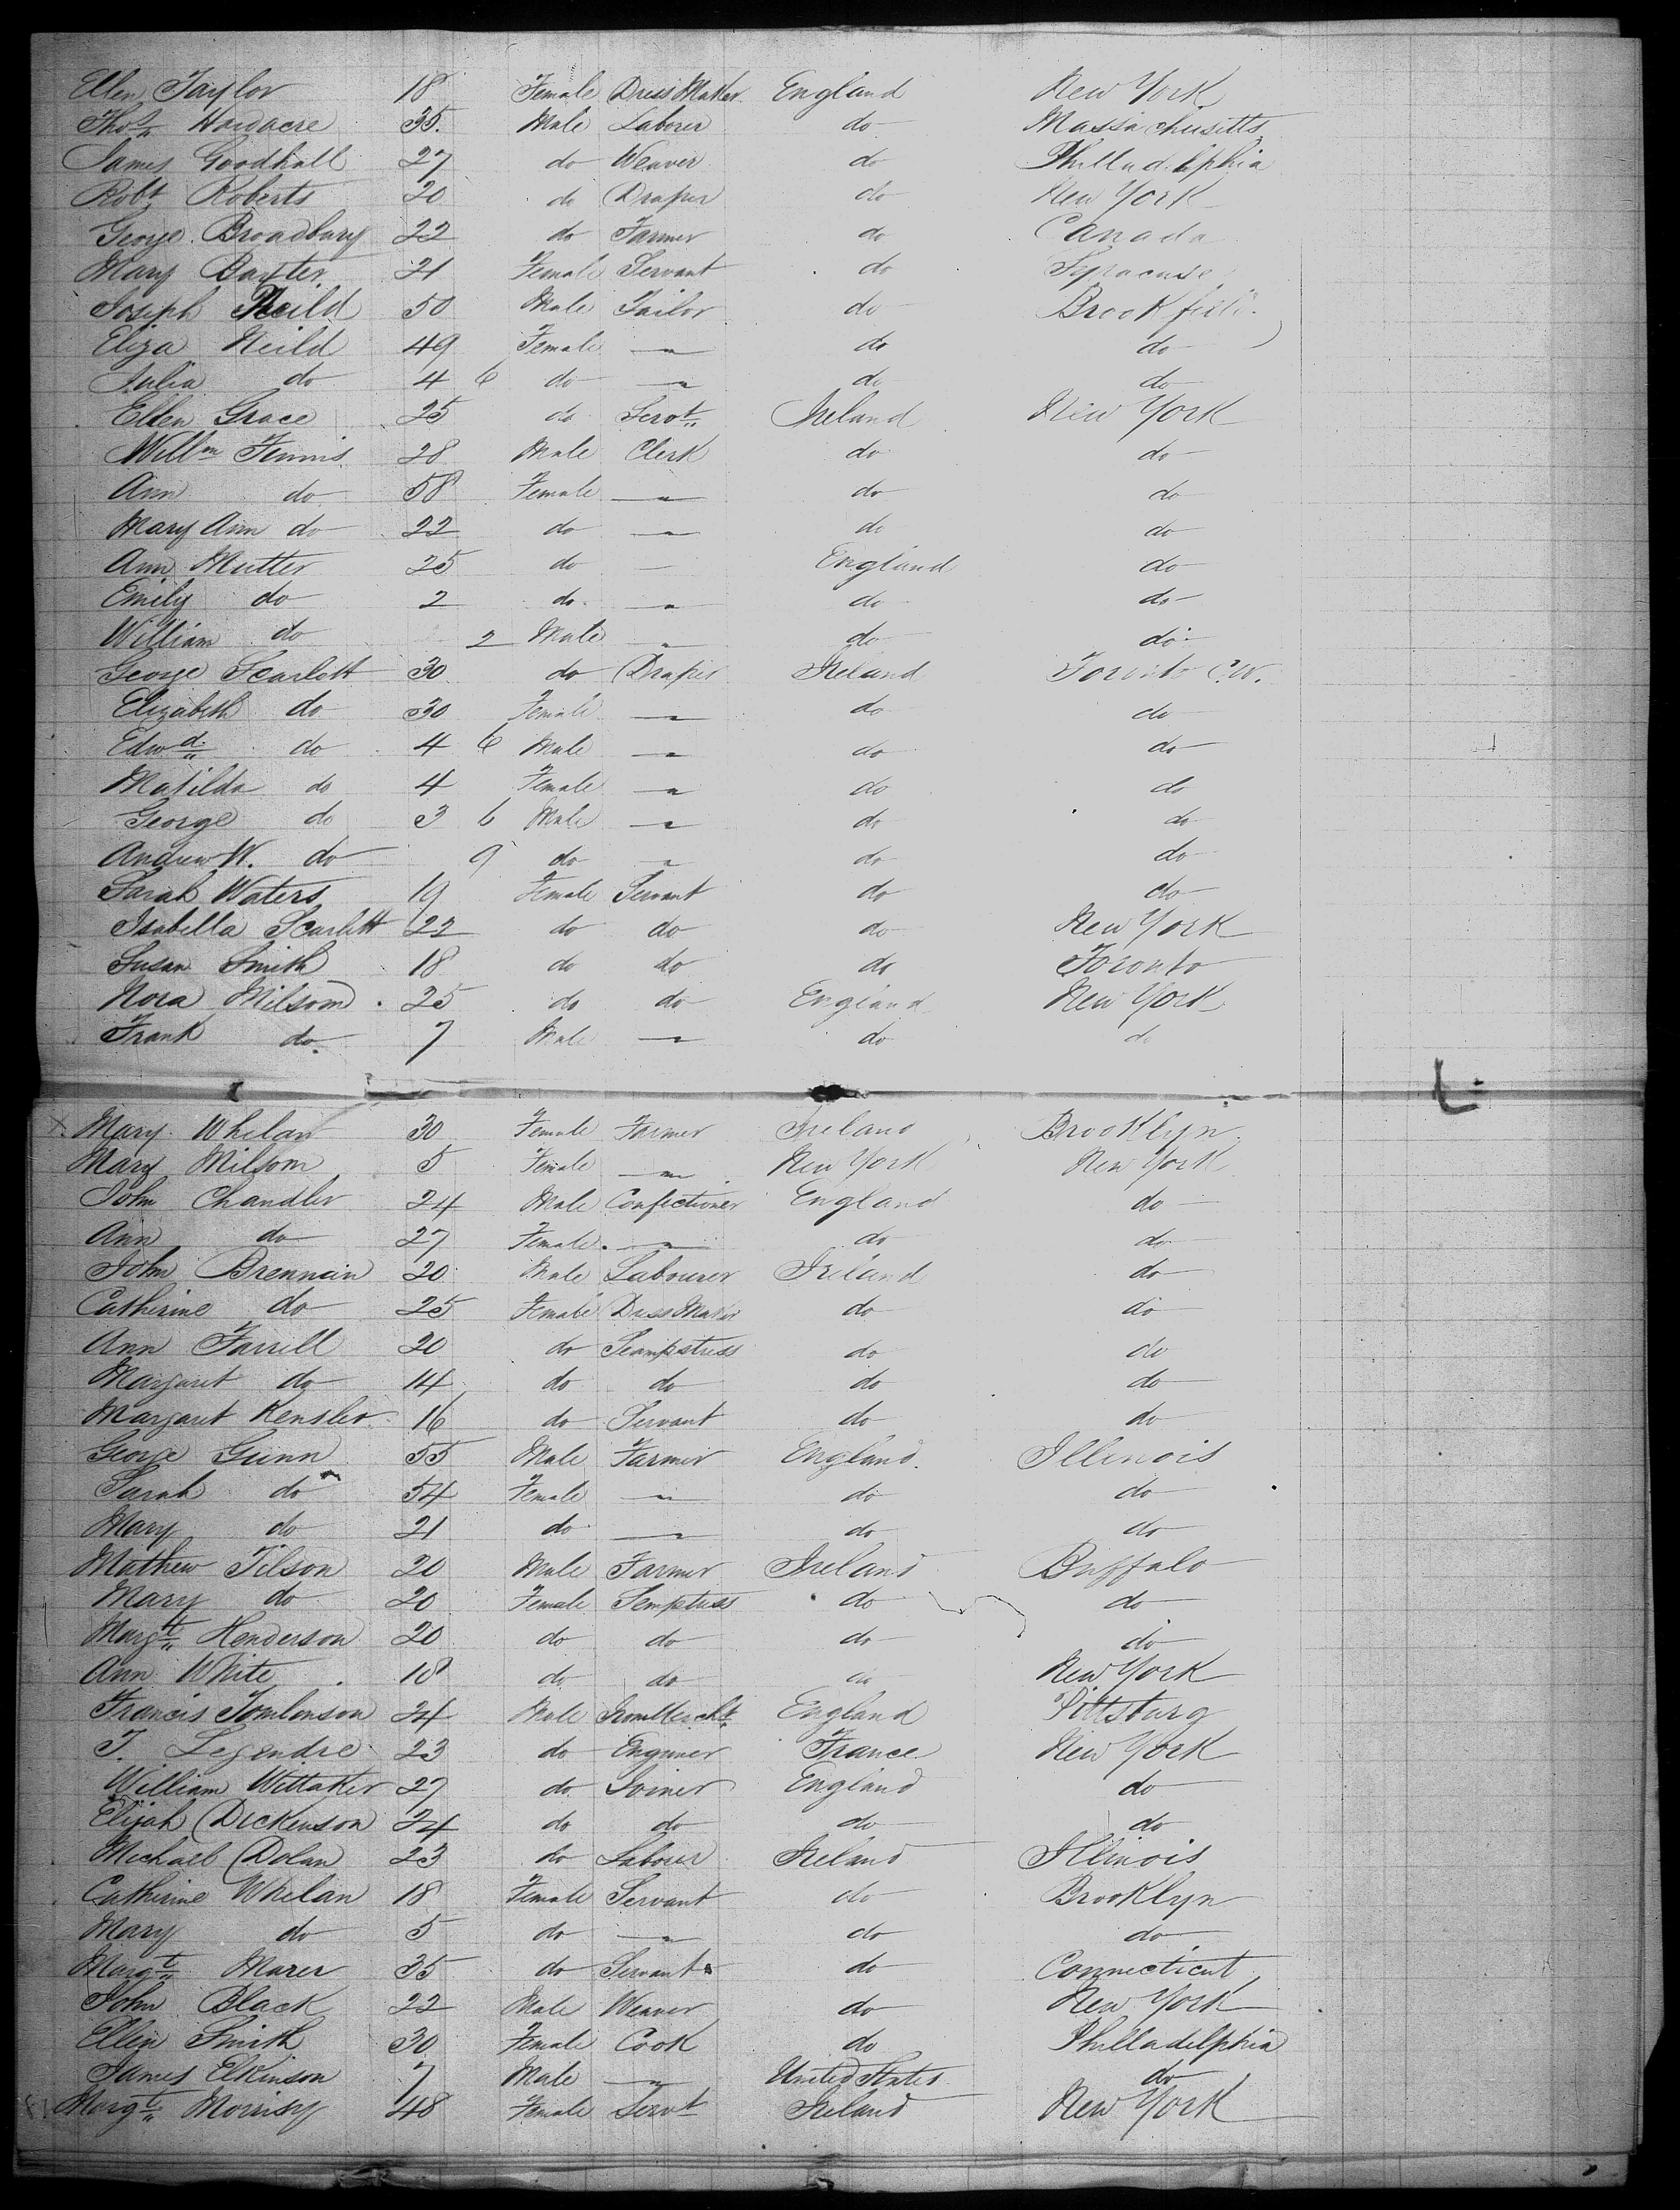 Ellen Taylor 18 Female Dress Maker England New York
Thos Hardacre 35 Male Laborer do Massachusetts
James Goodhall 27 do Weaver do Philladelphia
Robt Roberts 20 do Draper do New York
George Broadbury 22 do Farmer do Canada
Mary Baxter 21 Female Servant do Syracuse
Joseph Neild 50 Male Tailor do Brookfield
Eliza Neild 49 Female — do do
Julia do 4 6 do — do do
Ellen Grace 25 do Servt Ireland New York
Willm Fennis 28 Male Clerk do do
Ann do 58 Female — do do
Mary Ann do 22 do — do do
Ann Mutter 25 do — England do
Emily do 2 do — do do
William do 2 Male — do do
George Scarlett 30 do Draper Ireland Toronto C.W.
Elizabeth do 30 Female — do do
Edwd do 4 6 Male — do do
Matilda do 4 Female — do do
George do 3 6 Male — do do
Andrew W. do 9 do — do do
Sarah Waters 19 Female Servant do do
Isabella Scarlett 22 do do do New York
Susan Smith 18 do do do Toronto
Nora Milsom 25 do do England New York
Frank do 7 Male — do do
Mary Whelan 30 Female Farmer Ireland Brooklyn
Mary Milsom 5 Female — New York New York
John Chandler 24 Male Confectioner England do
Ann do 27 Female — do do
John Brennain 20 Male Labourer Ireland do
Catherine do 25 Female Dress Maker do do
Ann Farrill 20 do Seampstress do do
Margaret do 14 do do do do
Margaret Kensler 16 do Servant do do
George Gunn 55 Male Farmer England Illinois
Sarah do 54 Female — do do
Mary do 21 do — do do
Mathew Tilson 20 Male Farmer Ireland Buffalo
Mary do 20 Female Semptress do do
Margtt Henderson 20 do do do do
Ann White 18 do do do New York
Francis Tomlonson 24 Male England Pittsburg
T. Legendre 23 do Enginer France New York
William Wittaker 27 do Joiner England do
Elijah Dickenson 24 do do do do
Michael Dolan 23 do Laborer Ireland Illinois
Catherine Whelan 18 Female Servant do Brooklyn
Mary do 5 do — do do
Margt Marer 35 do Servant do Connecticut
John Black 22 Male Weaver do New York
Ellen Smith 30 Female Cook do Philladelphia
James Elkinson 7 Male — United States do
Margt Morrisy 48 Female Servt Ireland New York